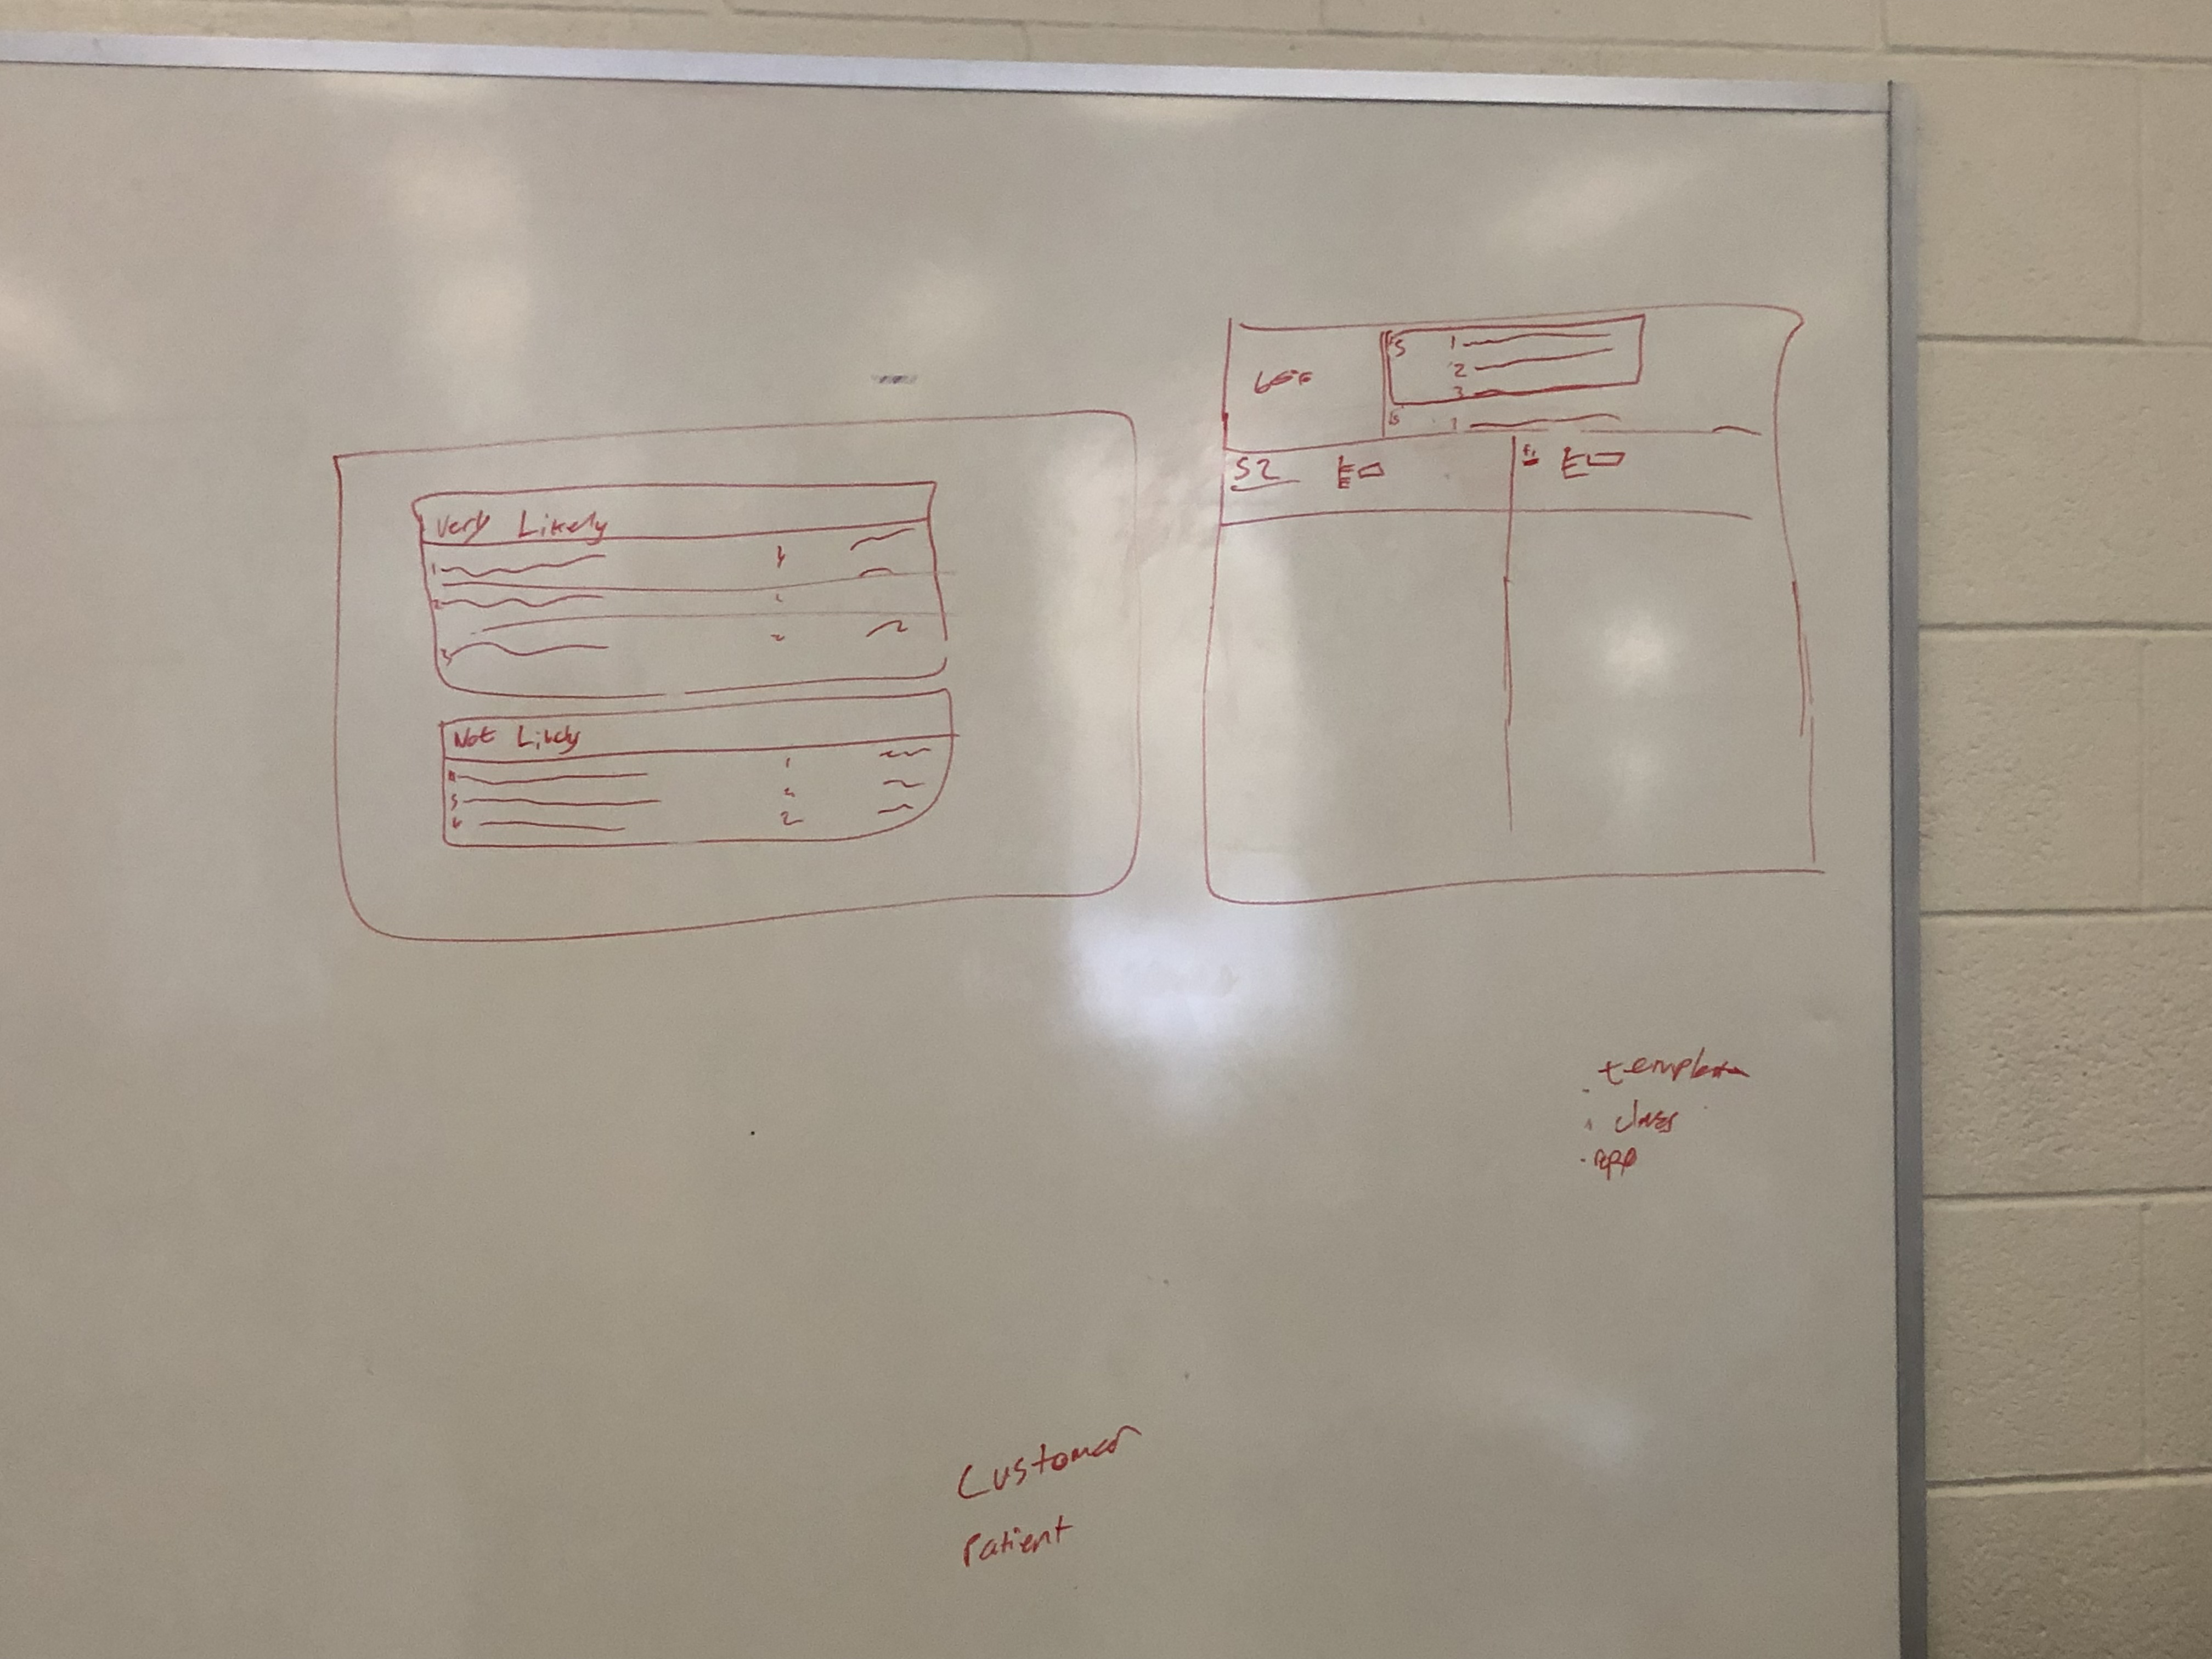 Very Likely
1
2
3
Not Likely
4
1
5
6
2
S 1
2
3
S 1
S2 E
E
template
class
app
Customer
Patient